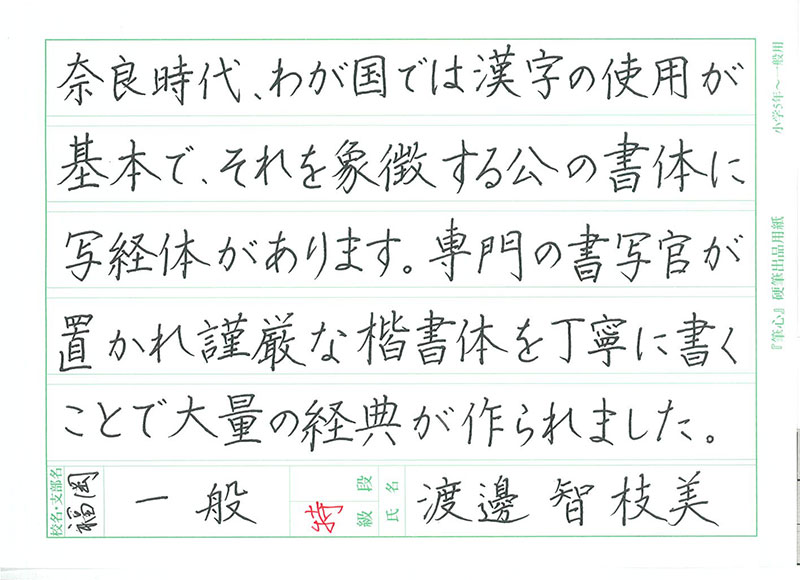 奈良時代、わが国では漢字の使用が
基本で、それを象徴する公の書体に
写経体があります。専門の書写官が
置かれ謹厳な楷書体を丁寧に書く
ことで大量の経典が作られました。
校名・支部名 福岡 一般 特 段級 氏名 渡邊智枝美
小学5年〜一般用
『筆心』硬筆出品用紙